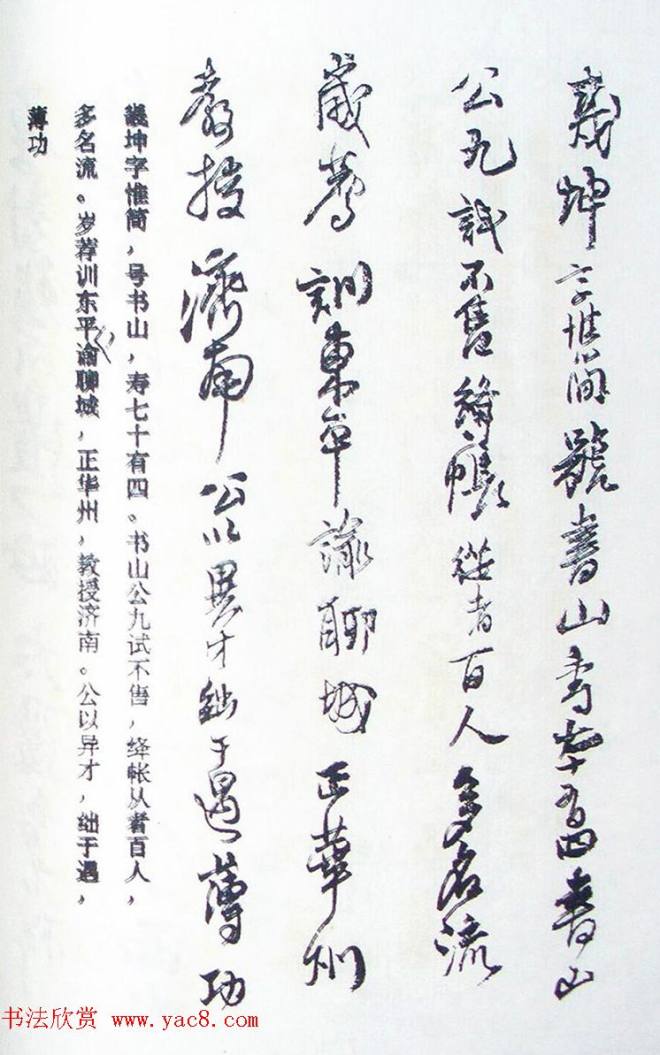 坤字惟简號書山寿七十有四書山
公九試不售絳帳從者百人多名流
歲薦訓東平諭聊城正華州
教授濟南公以異才絀于遇薄功
坤字惟简，号书山，寿七十有四。书山公九试不售，绛帐从者百人，
多名流。岁荐训东平谕聊城，正华州，教授济南。公以异才，绌于遇，
薄功
书法欣赏 www.yac8.com